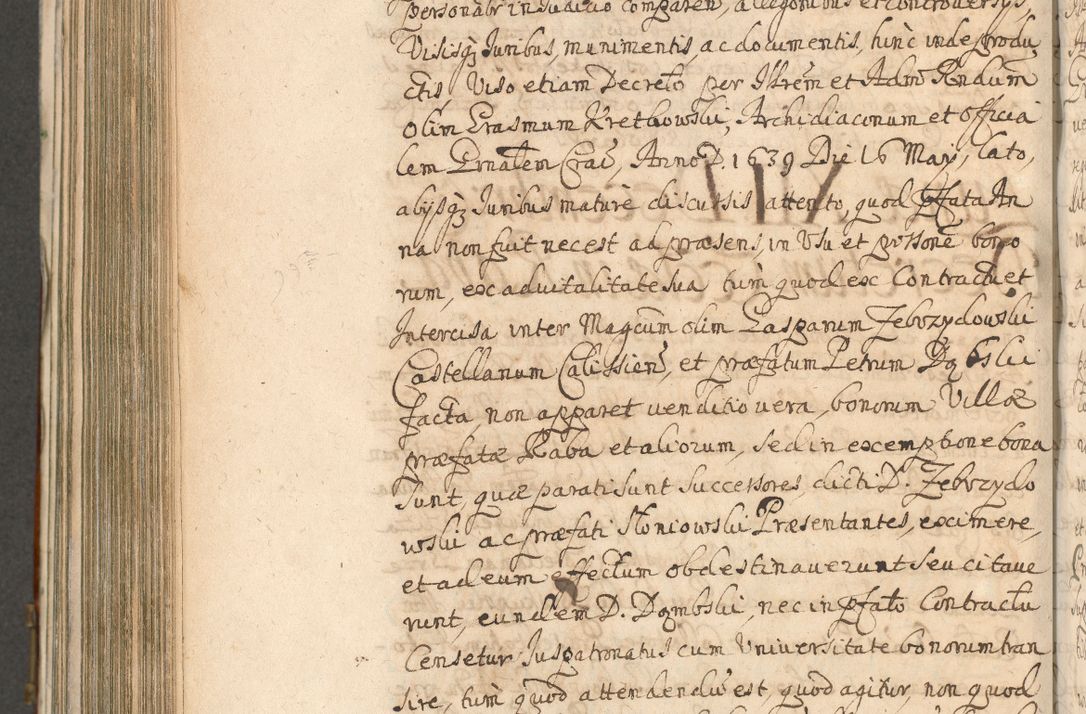 personalr in Iudicio comparen, allegonibus et controversys,
Visisq Iuribus, munimentis, ac documentis, hinc inde produ
ctis, Viso etiam Decreto per Illrem et Adm Rndum
olim Erasmum Kretkowski, Archidiaconum et officia
lem Grnalem Crac, Anno D. 1639 Die 16 May, lato,
abysq Iuribus mature discussis attento, quod pfata An
na non fuit nec est ad præsens, in Usu et possone bono
rum, ex aduitalitate sua tum quod ex Contractu et
Intercisa inter Magcum olim Gasparum Zebrzydowski
Castellanum Calissien, et præfatum Petrum Dąbski
facta, non apparet uenditio uera, bonorum Villæ
præfatæ Raba et aliorum, sed in exemptione bona
sunt, quæ parati sunt Successores, dicti D. Zebrzydo
wski ac præfati Słoniowski Præsentantes, eximere,
et ad eum effectum obdestinauerunt seu citaue
runt, eundem D. Dąmbski, nec in pfato Contractu
Censetur Iuspatronatus cum Vniuersitate bonorum tran
sire, tum quod attendendu est, quod agitur, non quod